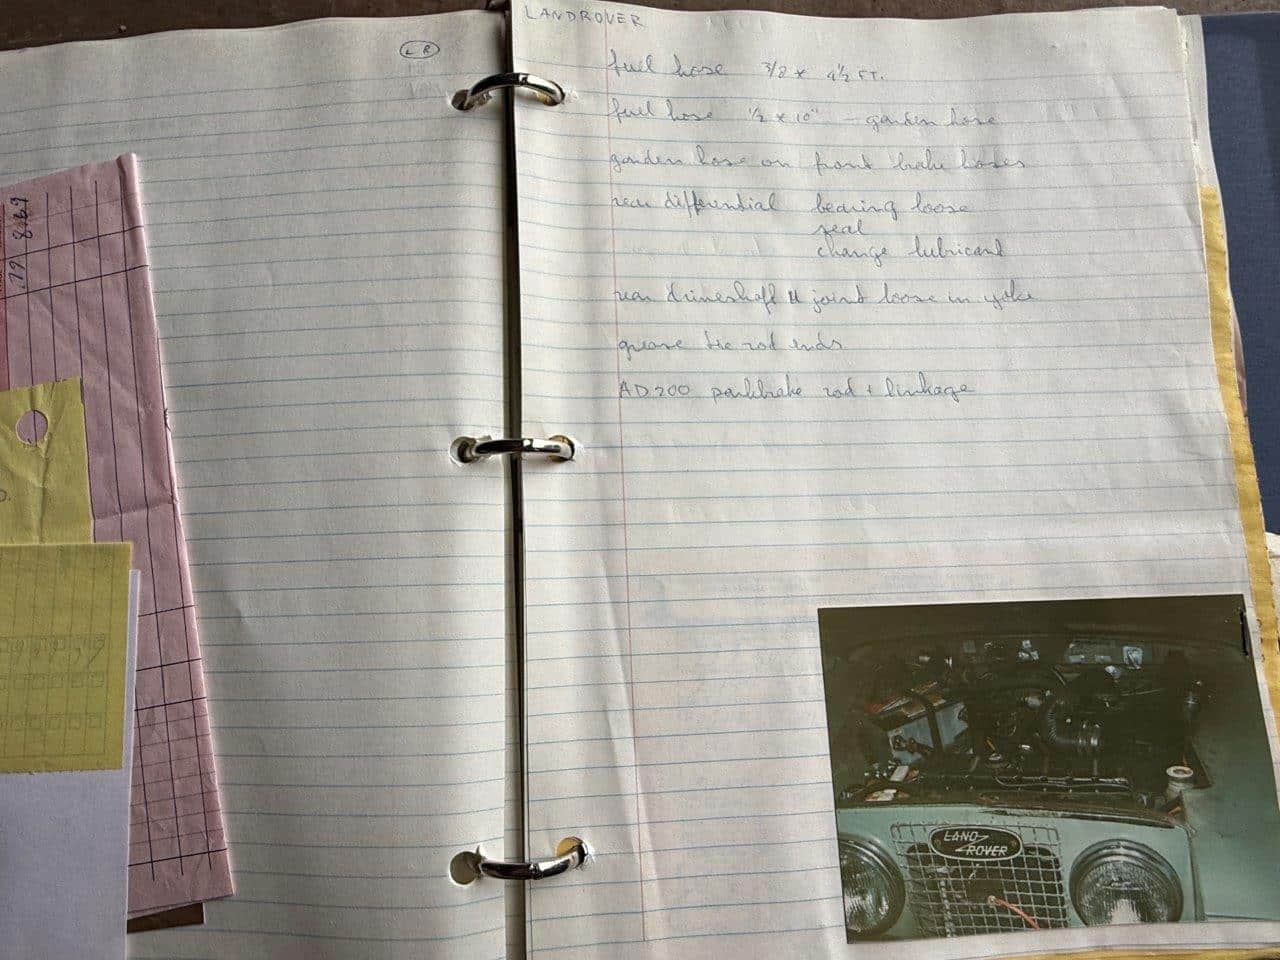 LR
LANDROVER
fuel hose 3/8 x 4½ FT.
fuel hose ½ x 10" - garden hose
garden hose on front brake hoses
rear differential bearing loose
seal
change lubricant
rear driveshaft U joint loose in yoke
grease tie rod ends
AD200 parkbrake rod + linkage
LAND
ROVER